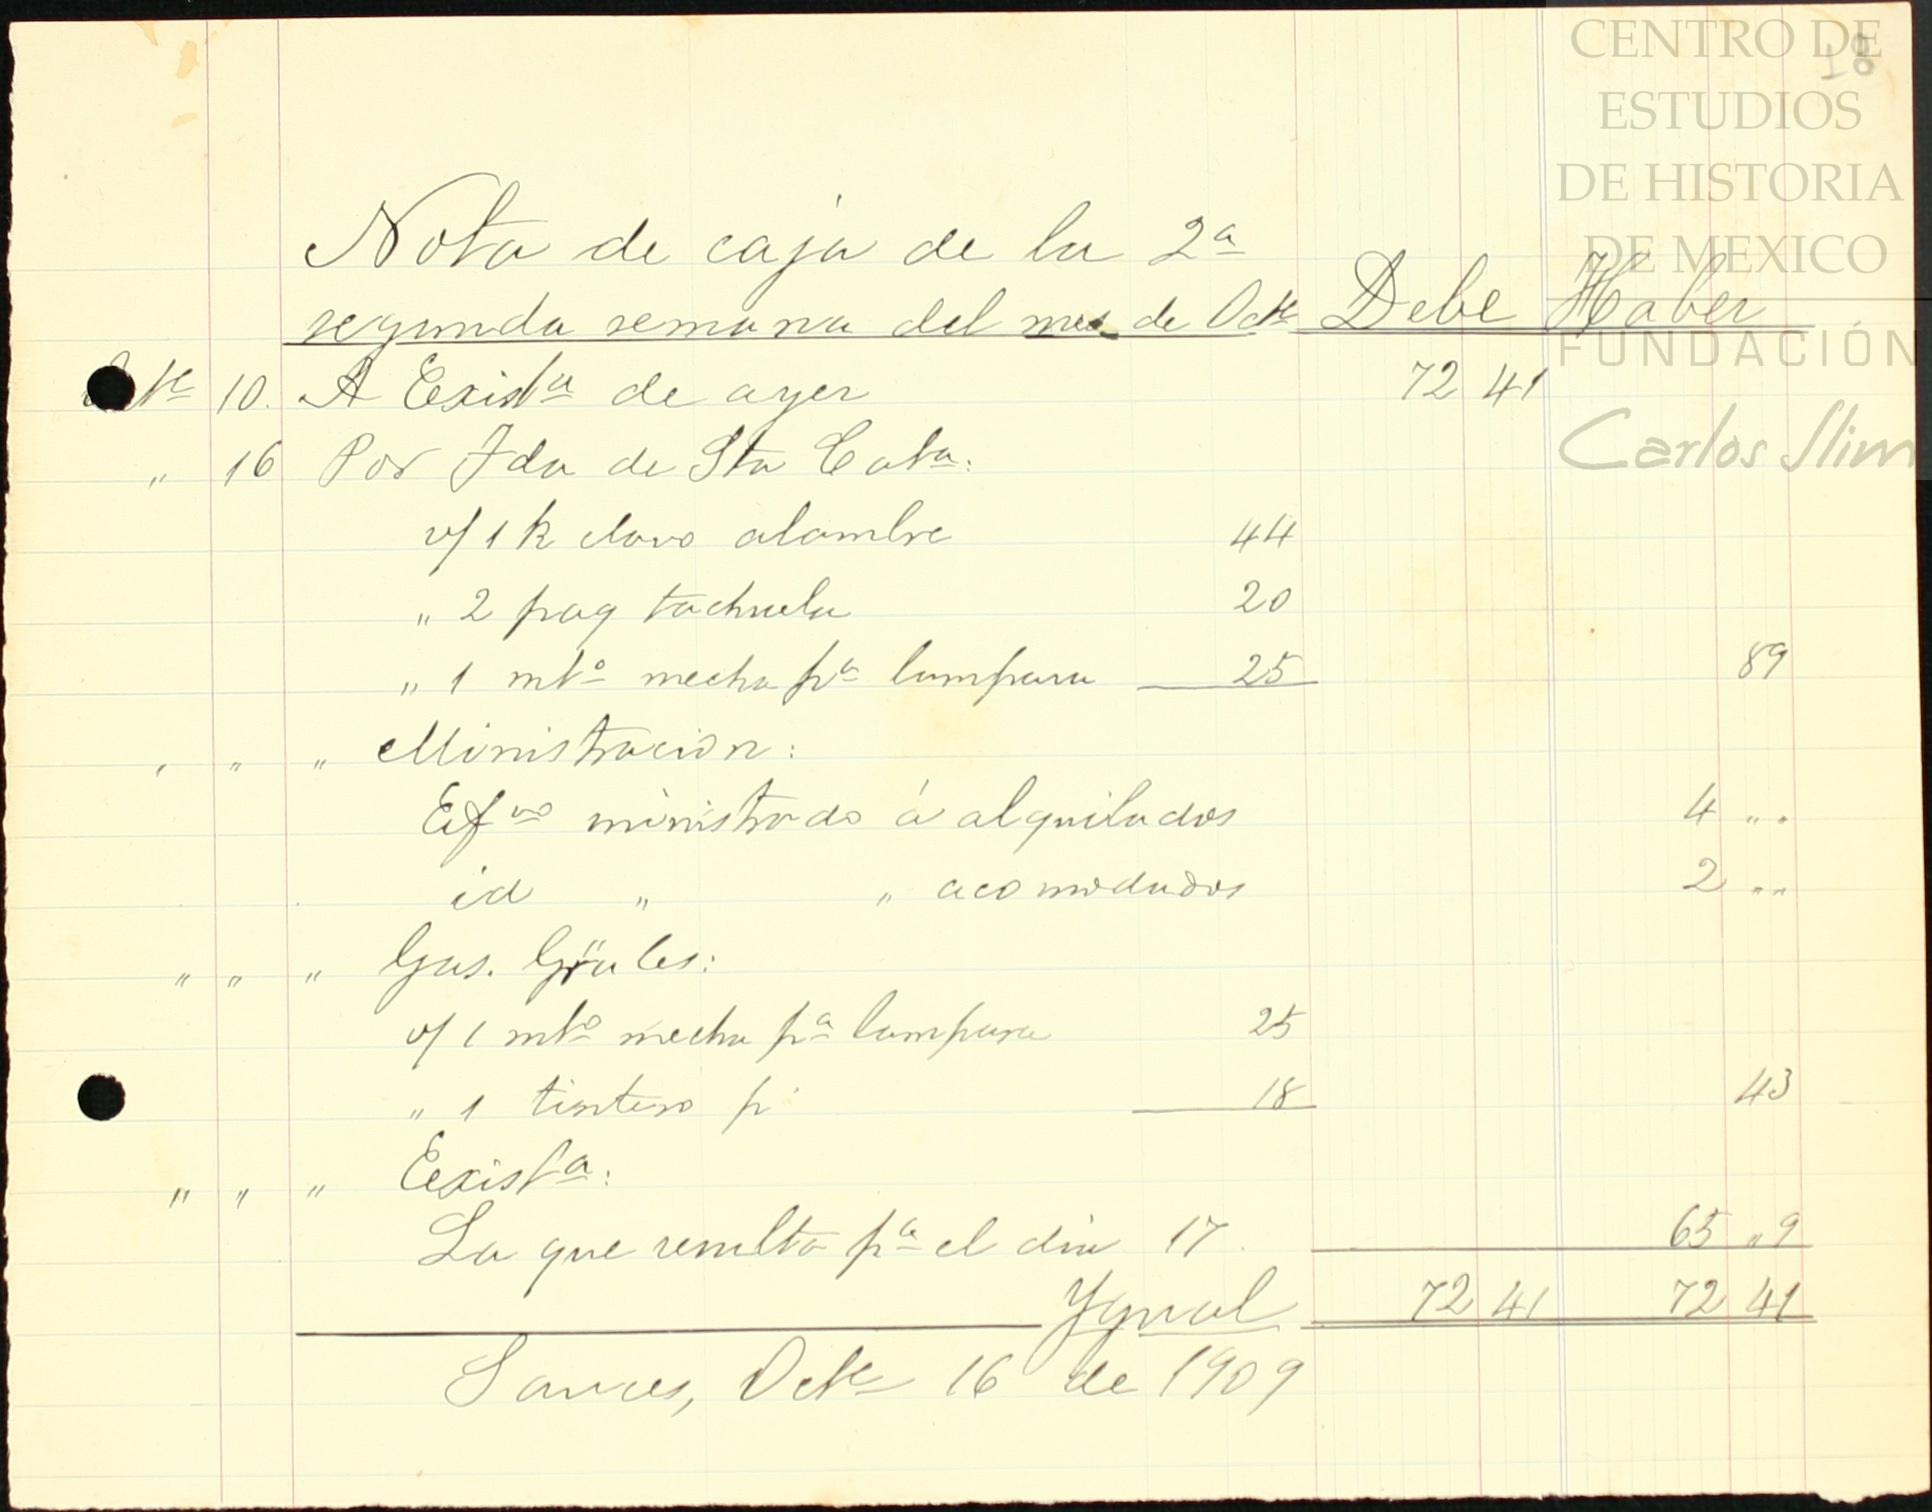 CENTRO DE
ESTUDIOS
DE HISTORIA
DE MEXICO
FUNDACIÓN
Carlos Slim
18
Nota de caja de la 2ª
segunda semana del mes de Octe Debe Haber
Octe 10. A Existª de ayer 72 41
" 16 Por Hda de Sta Catª:
v/ 1 k clavo alambre 44
" 2 paq tachuela 20
" 1 mtº mecha pª lampara 25 89
" " " Ministracion:
Efvo ministrado á alquilados 4 ""
id " " acomodados 2 ""
" " " Gas. Grales:
v/ 1 mtº mecha pª lampara 25
" 1 tintero p 18 43
" " " Existª:
La que resulta pª el dia 17. 65 "9
Ygual 72 41 72 41
Sauces, Octe 16 de 1909